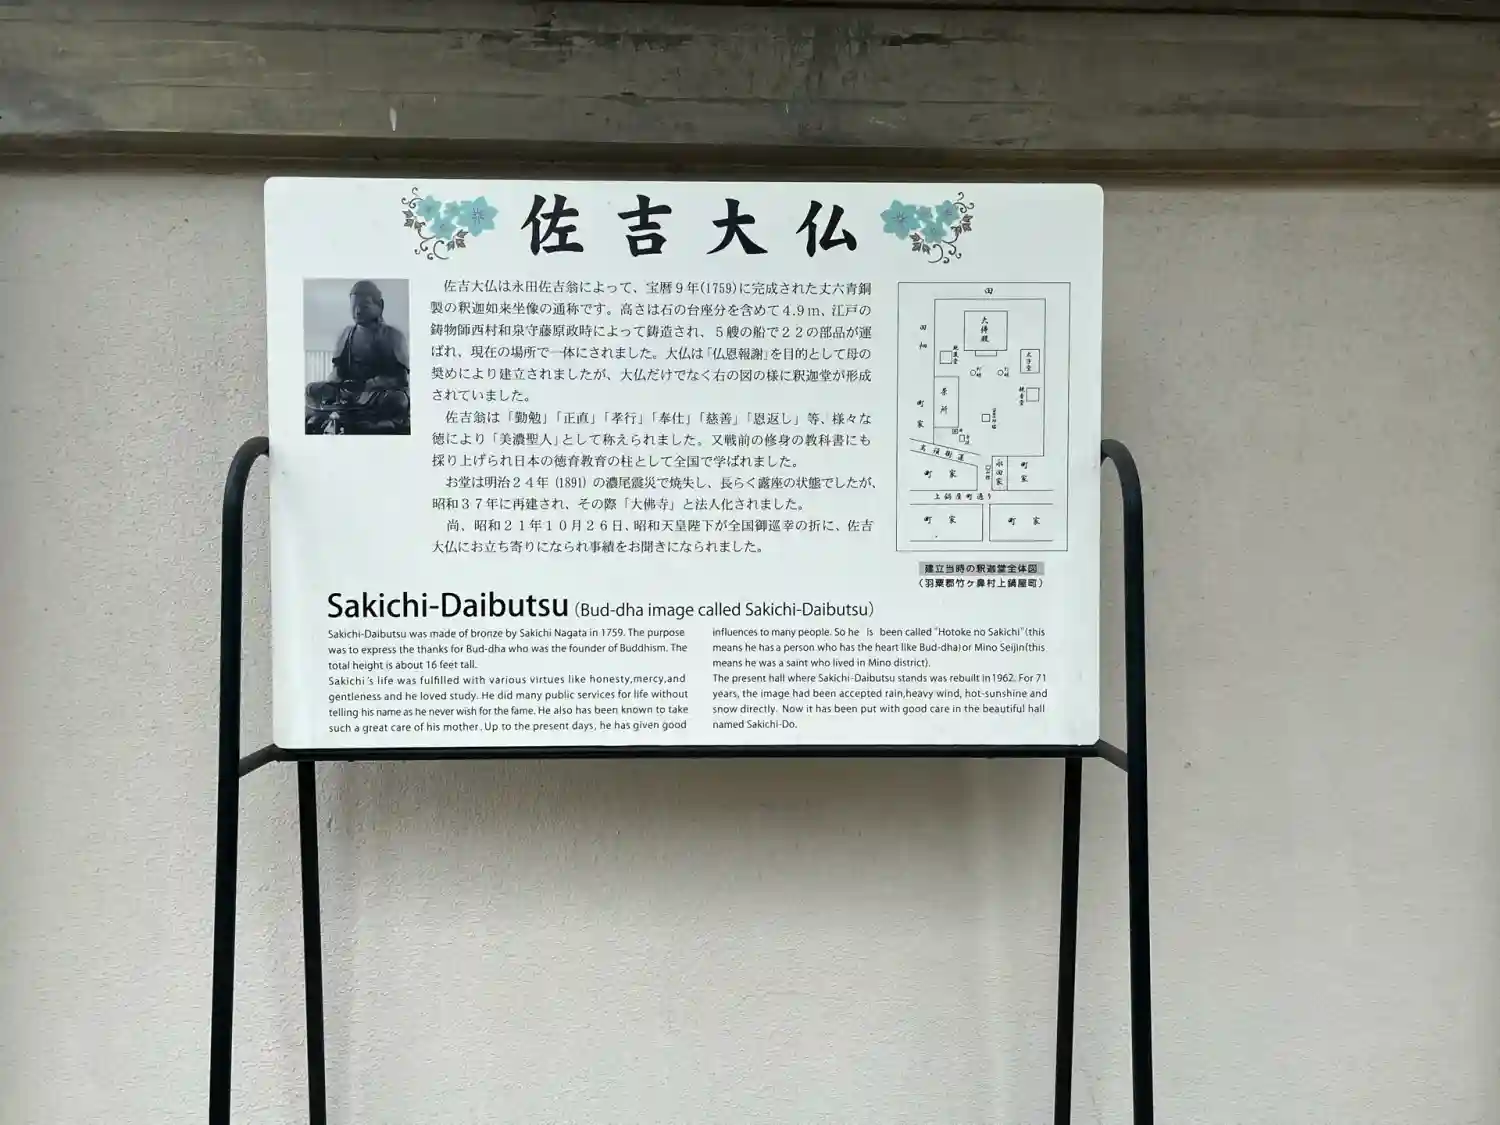 佐吉大仏
佐吉大仏は永田佐吉翁によって、宝暦9年(1759)に完成された丈六青銅
製の釈迦如来坐像の通称です。高さは石の台座分を含めて4.9m、江戸の
鋳物師西村和泉守藤原政時によって鋳造され、5艘の船で22の部品が運
ばれ、現在の場所で一体にされました。大仏は「仏恩報謝」を目的として母の
奨めにより建立されましたが、大仏だけでなく右の図の様に釈迦堂が形成
されていました。
佐吉翁は「勤勉」「正直」「孝行」「奉仕」「慈善」「恩返し」等、様々な
徳により「美濃聖人」として称えられました。又戦前の修身の教科書にも
採り上げられ日本の徳育教育の柱として全国で学ばれました。
お堂は明治24年(1891)の濃尾震災で焼失し、長らく露座の状態でしたが、
昭和37年に再建され、その際「大佛寺」と法人化されました。
尚、昭和21年10月26日、昭和天皇陛下が全国御巡幸の折に、佐吉
大仏にお立ち寄りになられ事績をお聞きになられました。
田
田
畑
大佛殿
地蔵堂
太子堂
観音堂
茶所
町家
永田家
町家
町家
上鍋屋町通り
町家
町家
建立当時の釈迦堂全体図
(羽栗郡竹ヶ鼻村上鍋屋町)
Sakichi-Daibutsu (Bud-dha image called Sakichi-Daibutsu)
Sakichi-Daibutsu was made of bronze by Sakichi Nagata in 1759. The purpose
was to express the thanks for Bud-dha who was the founder of Buddhism. The
total height is about 16 feet tall.
Sakichi's life was fulfilled with various virtues like honesty,mercy,and
gentleness and he loved study. He did many public services for life without
telling his name as he never wish for the fame. He also has been known to take
such a great care of his mother. Up to the present days, he has given good
influences to many people. So he is been called "Hotoke no Sakichi"(this
means he has a person who has the heart like Bud-dha)or Mino Seijin(this
means he was a saint who lived in Mino district).
The present hall where Sakichi-Daibutsu stands was rebuilt in 1962. For 71
years, the image had been accepted rain,heavy wind, hot-sunshine and
snow directly. Now it has been put with good care in the beautiful hall
named Sakichi-Do.